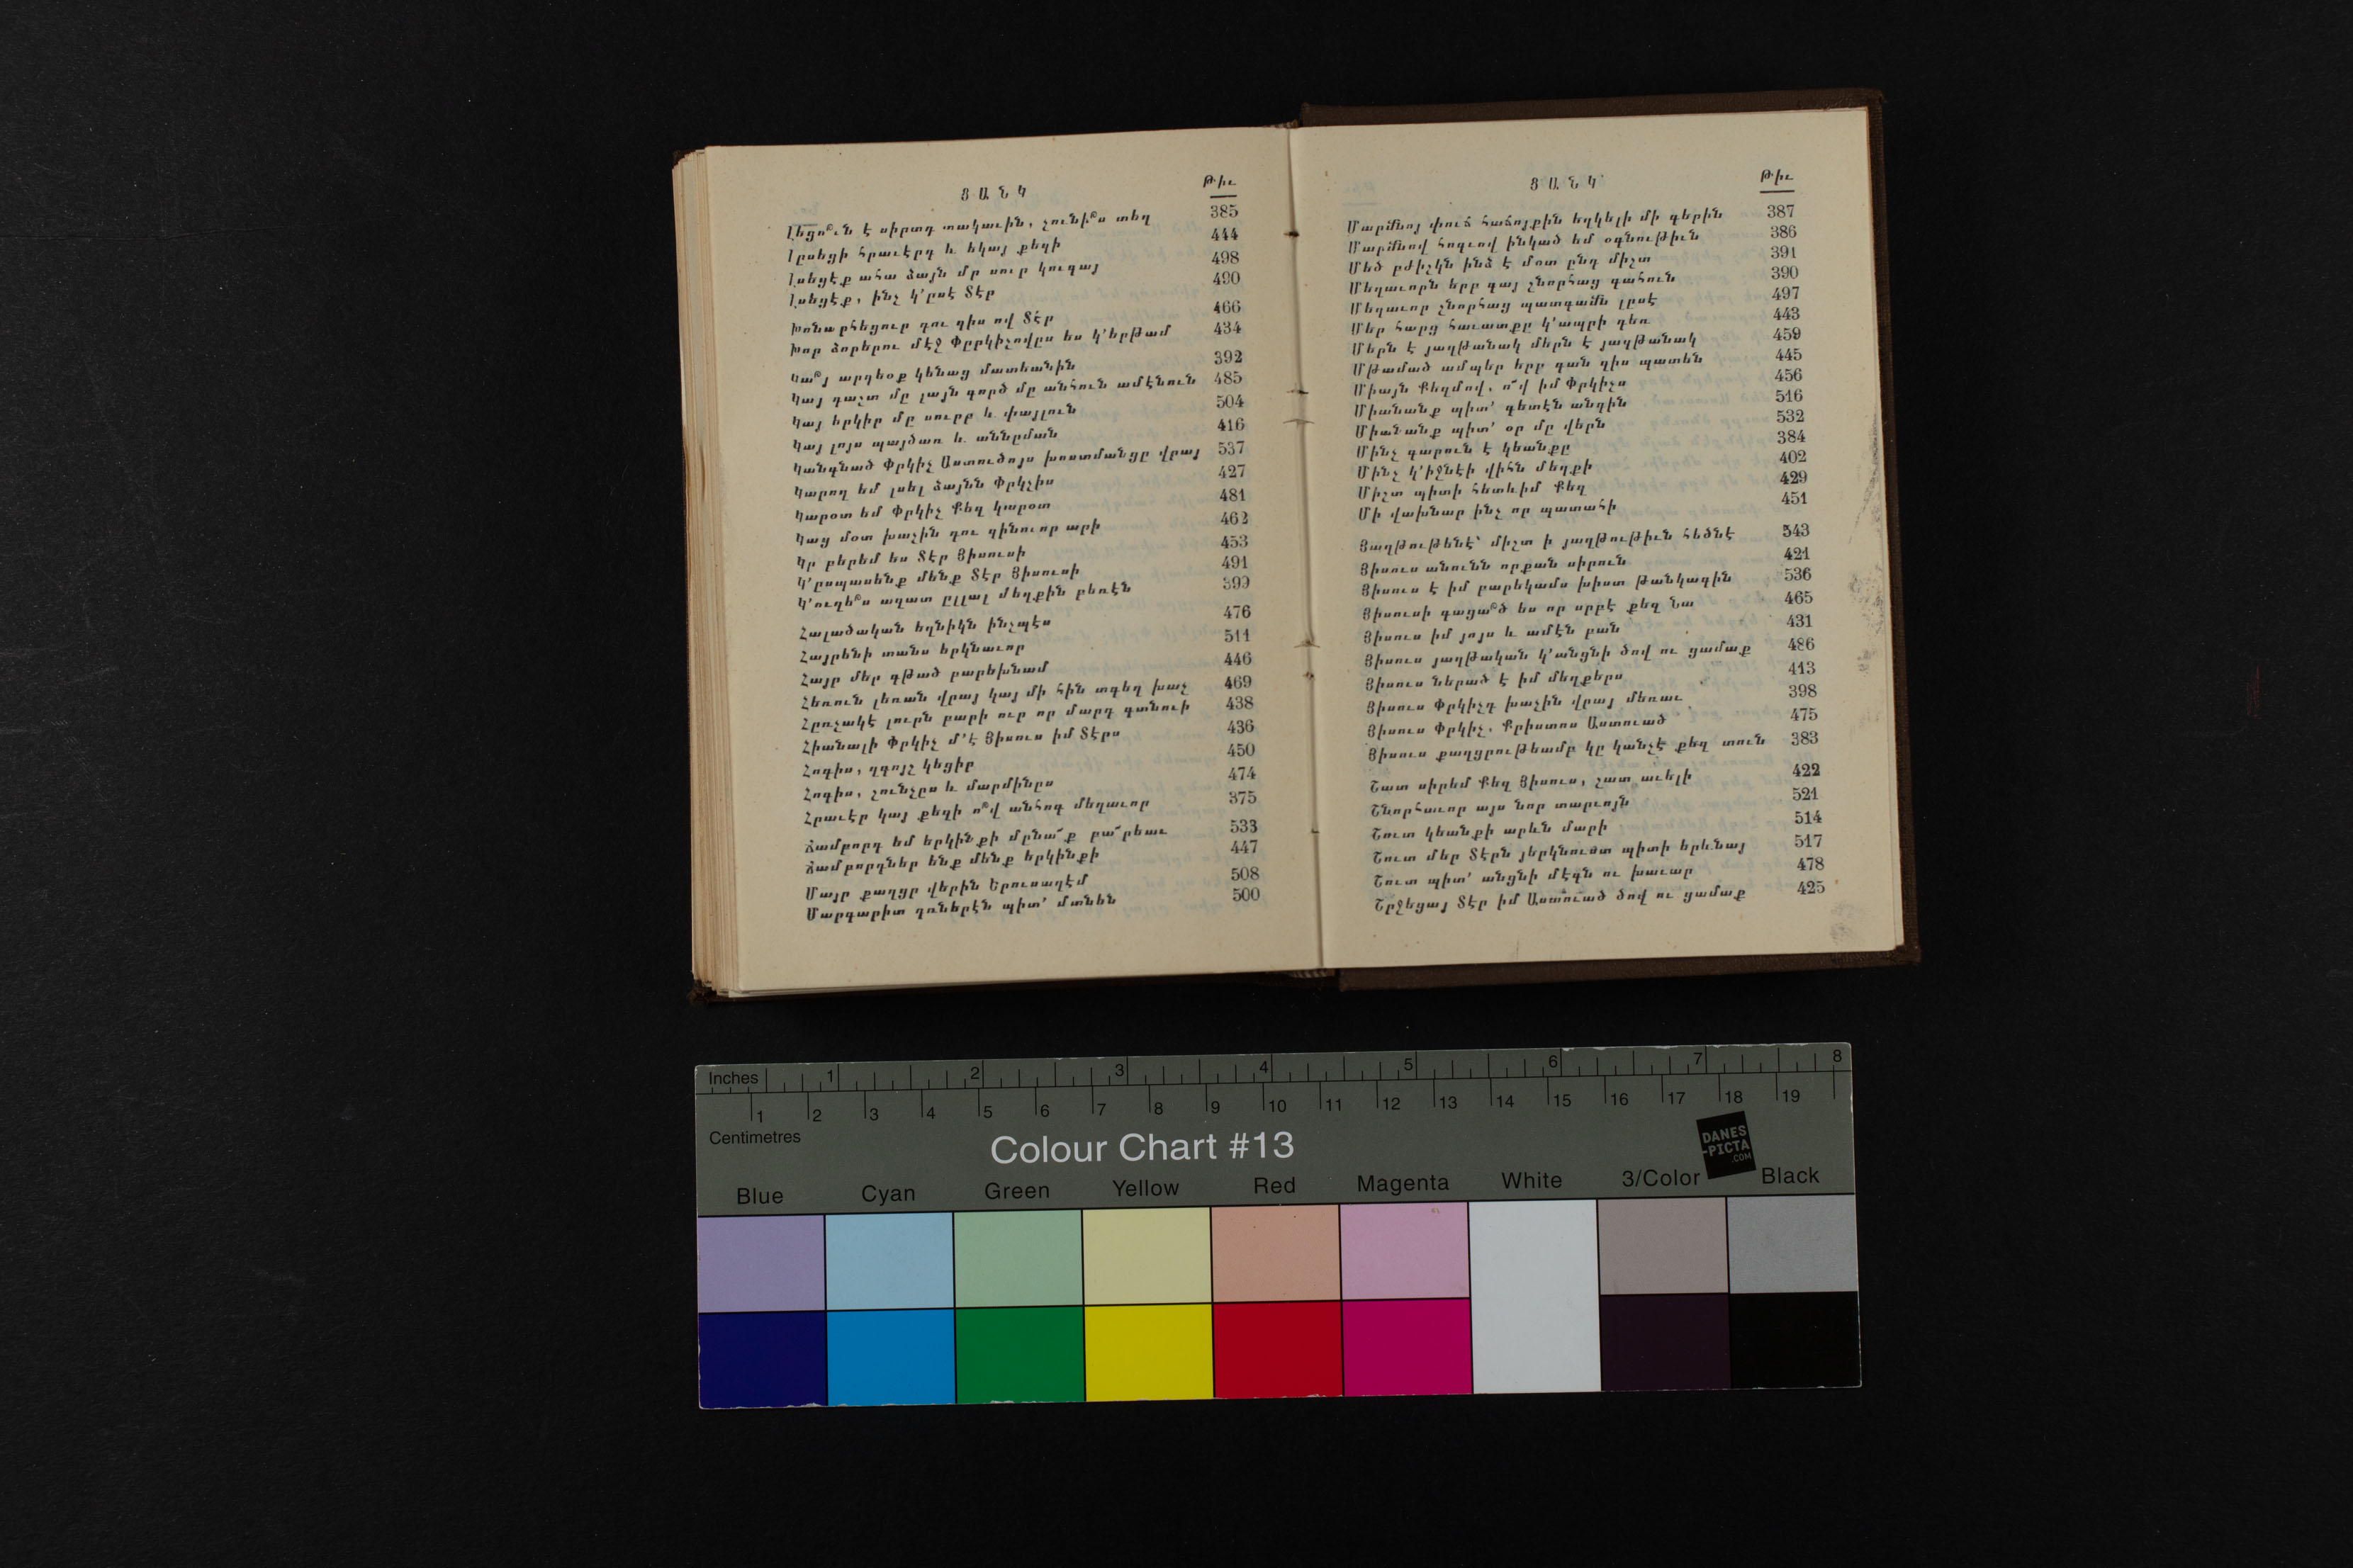 ՑԱՆԿ
Թիւ
Լեցո՞ւն է սիրտդ տակաւին, չունի՞ս տեղ 385
Լըսեցի հրաւէրդ և եկայ քեզի 444
Լսեցէք ահա ձայն մը սուր կուգայ 498
Լսեցէք, ինչ կ՚ըսէ Տէր 490
Խոնարհեցուր դու զիս ով Տէր 466
Խոր ձորերու մէջ Փըրկիչովըս ես կ՚երթամ 434
Կա՞յ արդեօք կենաց մատեանին 392
Կայ դաշտ մը լայն գործ մը անհուն ամէնուն 485
Կայ երկիր մը սուրբ և փայլուն 504
Կայ լոյս պայծառ և աննըման 416
Կանգնած Փրկիչ Աստուծոյս խոստմանցը վրայ 537
Կարող եմ լսել ձայնն Փրկչիս 427
Կարօտ եմ Փրկիչ Քեզ կարօտ 481
Կաց մօտ խաչին դու զինուոր արի 462
Կը բերեմ ես Տէր Յիսուսի 453
Կ՚ըսպասենք մենք Տէր Յիսուսի 491
Կ՚ուզե՞ս ազատ ըլլալ մեղքին բեռէն 399
Հալածական եղնիկն ինչպէս 476
Հայրենի տանս երկնաւոր 511
Հայր մեր գթած բարեխնամ 446
Հեռուն լեռան վրայ կայ մի հին տգեղ խաչ 469
Հըռչակէ լուրն բարի ուր որ մարդ գտնուի 438
Հիանալի Փրկիչ մ՚է Յիսուս իմ Տէրս 436
Հոգիս, զգոյշ կեցիր 450
Հոգիս, շունչըս և մարմինըս 474
Հրաւէր կայ քեզի ո՞վ անհոգ մեղաւոր 375
Ճամբորդ եմ երկինքի մընա՜ք բա՜րեաւ 533
Ճամբորդներ ենք մենք երկինքի 447
Մայր քաղցր վերին Երուսաղէմ 508
Մարգարիտ դռներէն պիտ՚ մտնեն 500
ՑԱՆԿ
Թիւ
Մարմնոյ փուճ հաճոյքին եղկելի մի գերին 387
Մարմնով հոգւով ինկած եմ օգնութիւն 386
Մեծ բժիշկն ինձ է մօտ ընդ միշտ 391
Մեղաւորն երբ գայ շնորհաց գահուն 390
Մեղաւոր շնորհաց պատգամն լըսէ 497
Մեր հարց հաւատքը կ՚ապրի դեռ 443
Մերն է յաղթանակ մերն է յաղթանակ 459
Մթամած ամպեր երբ գան զիս պատեն 445
Միայն Քեզմով, ո՜վ իմ Փրկիչս 456
Միանանք պիտ՚ գետէն անդին 516
Միանանք պիտ՚ օր մը վերն 532
Մինչ գարուն է կեանքը 384
Մինչ կ՚իջնէի վիհն մեղքի 402
Միշտ պիտի հետևիմ Քեզ 429
Մի վախնար ինչ որ պատահի 451
Յաղթութենէ՝ միշտ ի յաղթութիւն հեծնէ 543
Յիսուս անունն որքան սիրուն 421
Յիսուս է իմ բարեկամս խիստ թանկագին 536
Յիսուսի գացա՞ծ ես որ սրբէ քեզ նա 465
Յիսուս իմ յոյս և ամէն բան 431
Յիսուս յաղթական կ՚անցնի ծով ու ցամաք 486
Յիսուս ներած է իմ մեղքերս 413
Յիսուս Փրկիչդ խաչին վրայ մեռաւ 398
Յիսուս Փրկիչ, Քրիստոս Աստուած 475
Յիսուս քաղցրութեամբ կը կանչէ քեզ տուն 383
Շատ սիրեմ Քեզ Յիսուս, շատ աւելի 422
Շնորհաւոր այս նոր տարւոյն 521
Շուտ կեանքի արևն մարի 514
Շուտ մեր Տէրն յերկնուստ պիտի երևնայ 517
Շուտ պիտ՚ անցնի մէգն ու խաւար 478
Շրջեցայ Տէր իմ Աստուած ծով ու ցամաք 425
Inches 1 2 3 4 5 6 7 8
1 2 3 4 5 6 7 8 9 10 11 12 13 14 15 16 17 18 19
Centimetres
Colour Chart #13
DANES
-PICTA
.COM
Blue Cyan Green Yellow Red Magenta White 3/Color Black